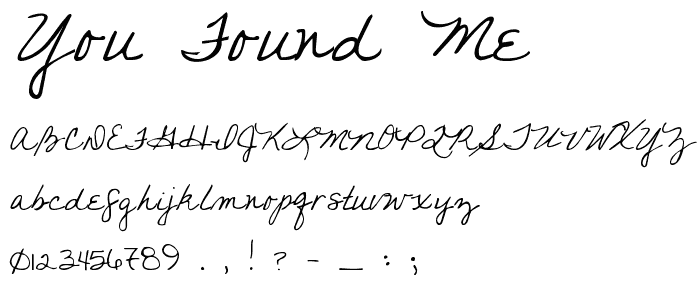 You Found Me
ABCDEFGHIJKLMNOPQRSTUVWXYZ
abcdefghijklmnopqrstuvwxyz
0123456789 . , ! ? - _ : ;